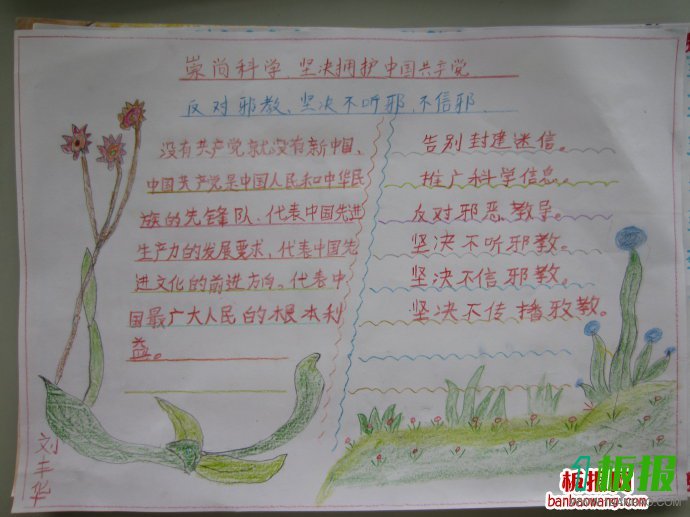 崇尚科学、坚决拥护中国共产党
反对邪教、坚决不听邪、不信邪
没有共产党就没有新中国、
中国共产党是中国人民和中华民
族的先锋队、代表中国先进
生产力的发展要求、代表中国先
进文化的前进方向。代表中
国最广大人民的根本利
益。
告别封建迷信。
推广科学信息。
反对邪恶教导。
坚决不听邪教。
坚决不信邪教。
坚决不传播邪教。
刘丰华
板报
板报网
banbaowang.com